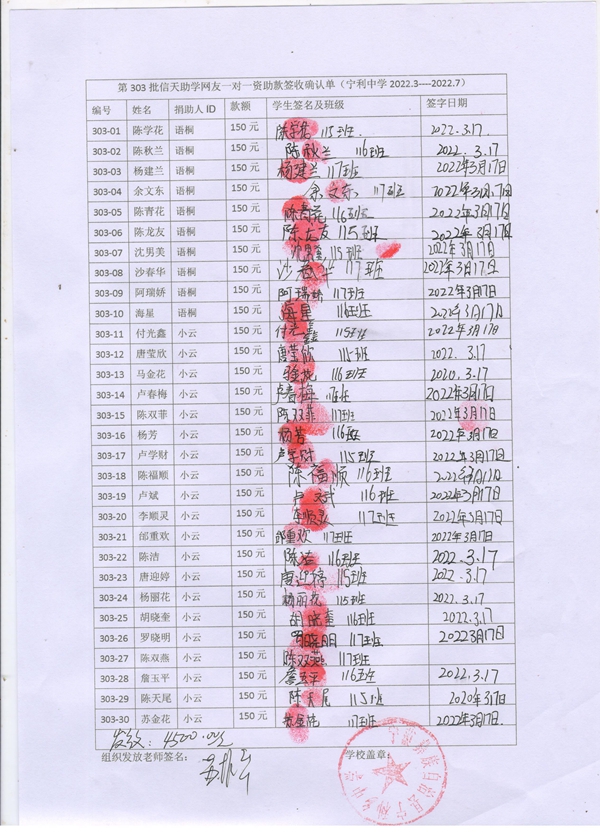 第303批信天助学网友一对一资助款签收确认单（宁利中学2022.3----2022.7）
编号 姓名 捐助人ID 款额 学生签名及班级 签字日期
303-01 陈学花 语桐 150元 陈学花 115班 2022.3.17
303-02 陈秋兰 语桐 150元 陈秋兰 116班 2022.3.17
303-03 杨建兰 语桐 150元 杨建兰 117班 2022年3月17日
303-04 余文东 语桐 150元 余文东 117班 2022年3月17日
303-05 陈青花 语桐 150元 陈青花 116班 2022年3月17日
303-06 陈龙友 语桐 150元 陈龙友 115班 2022年3月17日
303-07 沈男美 语桐 150元 115班 2022年3月17日
303-08 沙春华 语桐 150元 沙春华 117班 2022年3月17日
303-09 阿瑞娇 语桐 150元 阿瑞娇 117班 2022年3月17日
303-10 海星 语桐 150元 海星 116班 2022年3月17日
303-11 付光鑫 小云 150元 付光鑫 115班 2022年3月17日
303-12 唐莹欣 小云 150元 唐莹欣 115班 2022.3.17
303-13 马金花 小云 150元 116班 2020.3.17
303-14 卢春梅 小云 150元 卢春梅 2022年3月17日
303-15 陈双菲 小云 150元 陈双菲 117班 2022年3月17日
303-16 杨芳 小云 150元 杨芳 116班 2022年3月17日
303-17 卢学财 小云 150元 卢学财 115班 2022年3月17日
303-18 陈福顺 小云 150元 陈福顺 116班
303-19 卢斌 小云 150元 卢斌 116班 2022年3月17日
303-20 李顺灵 小云 150元 李顺灵 117班 2022年3月17日
303-21 邰重欢 小云 150元 邰重欢 117班 2022年3月17日
303-22 陈洁 小云 150元 陈洁 116班 2022.3.17
303-23 唐迎婷 小云 150元 唐迎婷 115班 2022.3.17
303-24 杨丽花 小云 150元 杨丽花 115班 2022.3.17
303-25 胡晓奎 小云 150元 胡晓奎 116班 2022.3.17
303-26 罗晓明 小云 150元 罗晓明 117班 2022 3月17日
303-27 陈双燕 小云 150元 陈双燕 117班
303-28 詹玉平 小云 150元 詹玉平 116班 2022.3.17
303-29 陈天尾 小云 150元 陈天尾 115班 2020年3月17日
303-30 苏金花 小云 150元 苏金花 117班 2022年3月17日
发放：4500.00元
组织发放老师签名： 学校盖章：